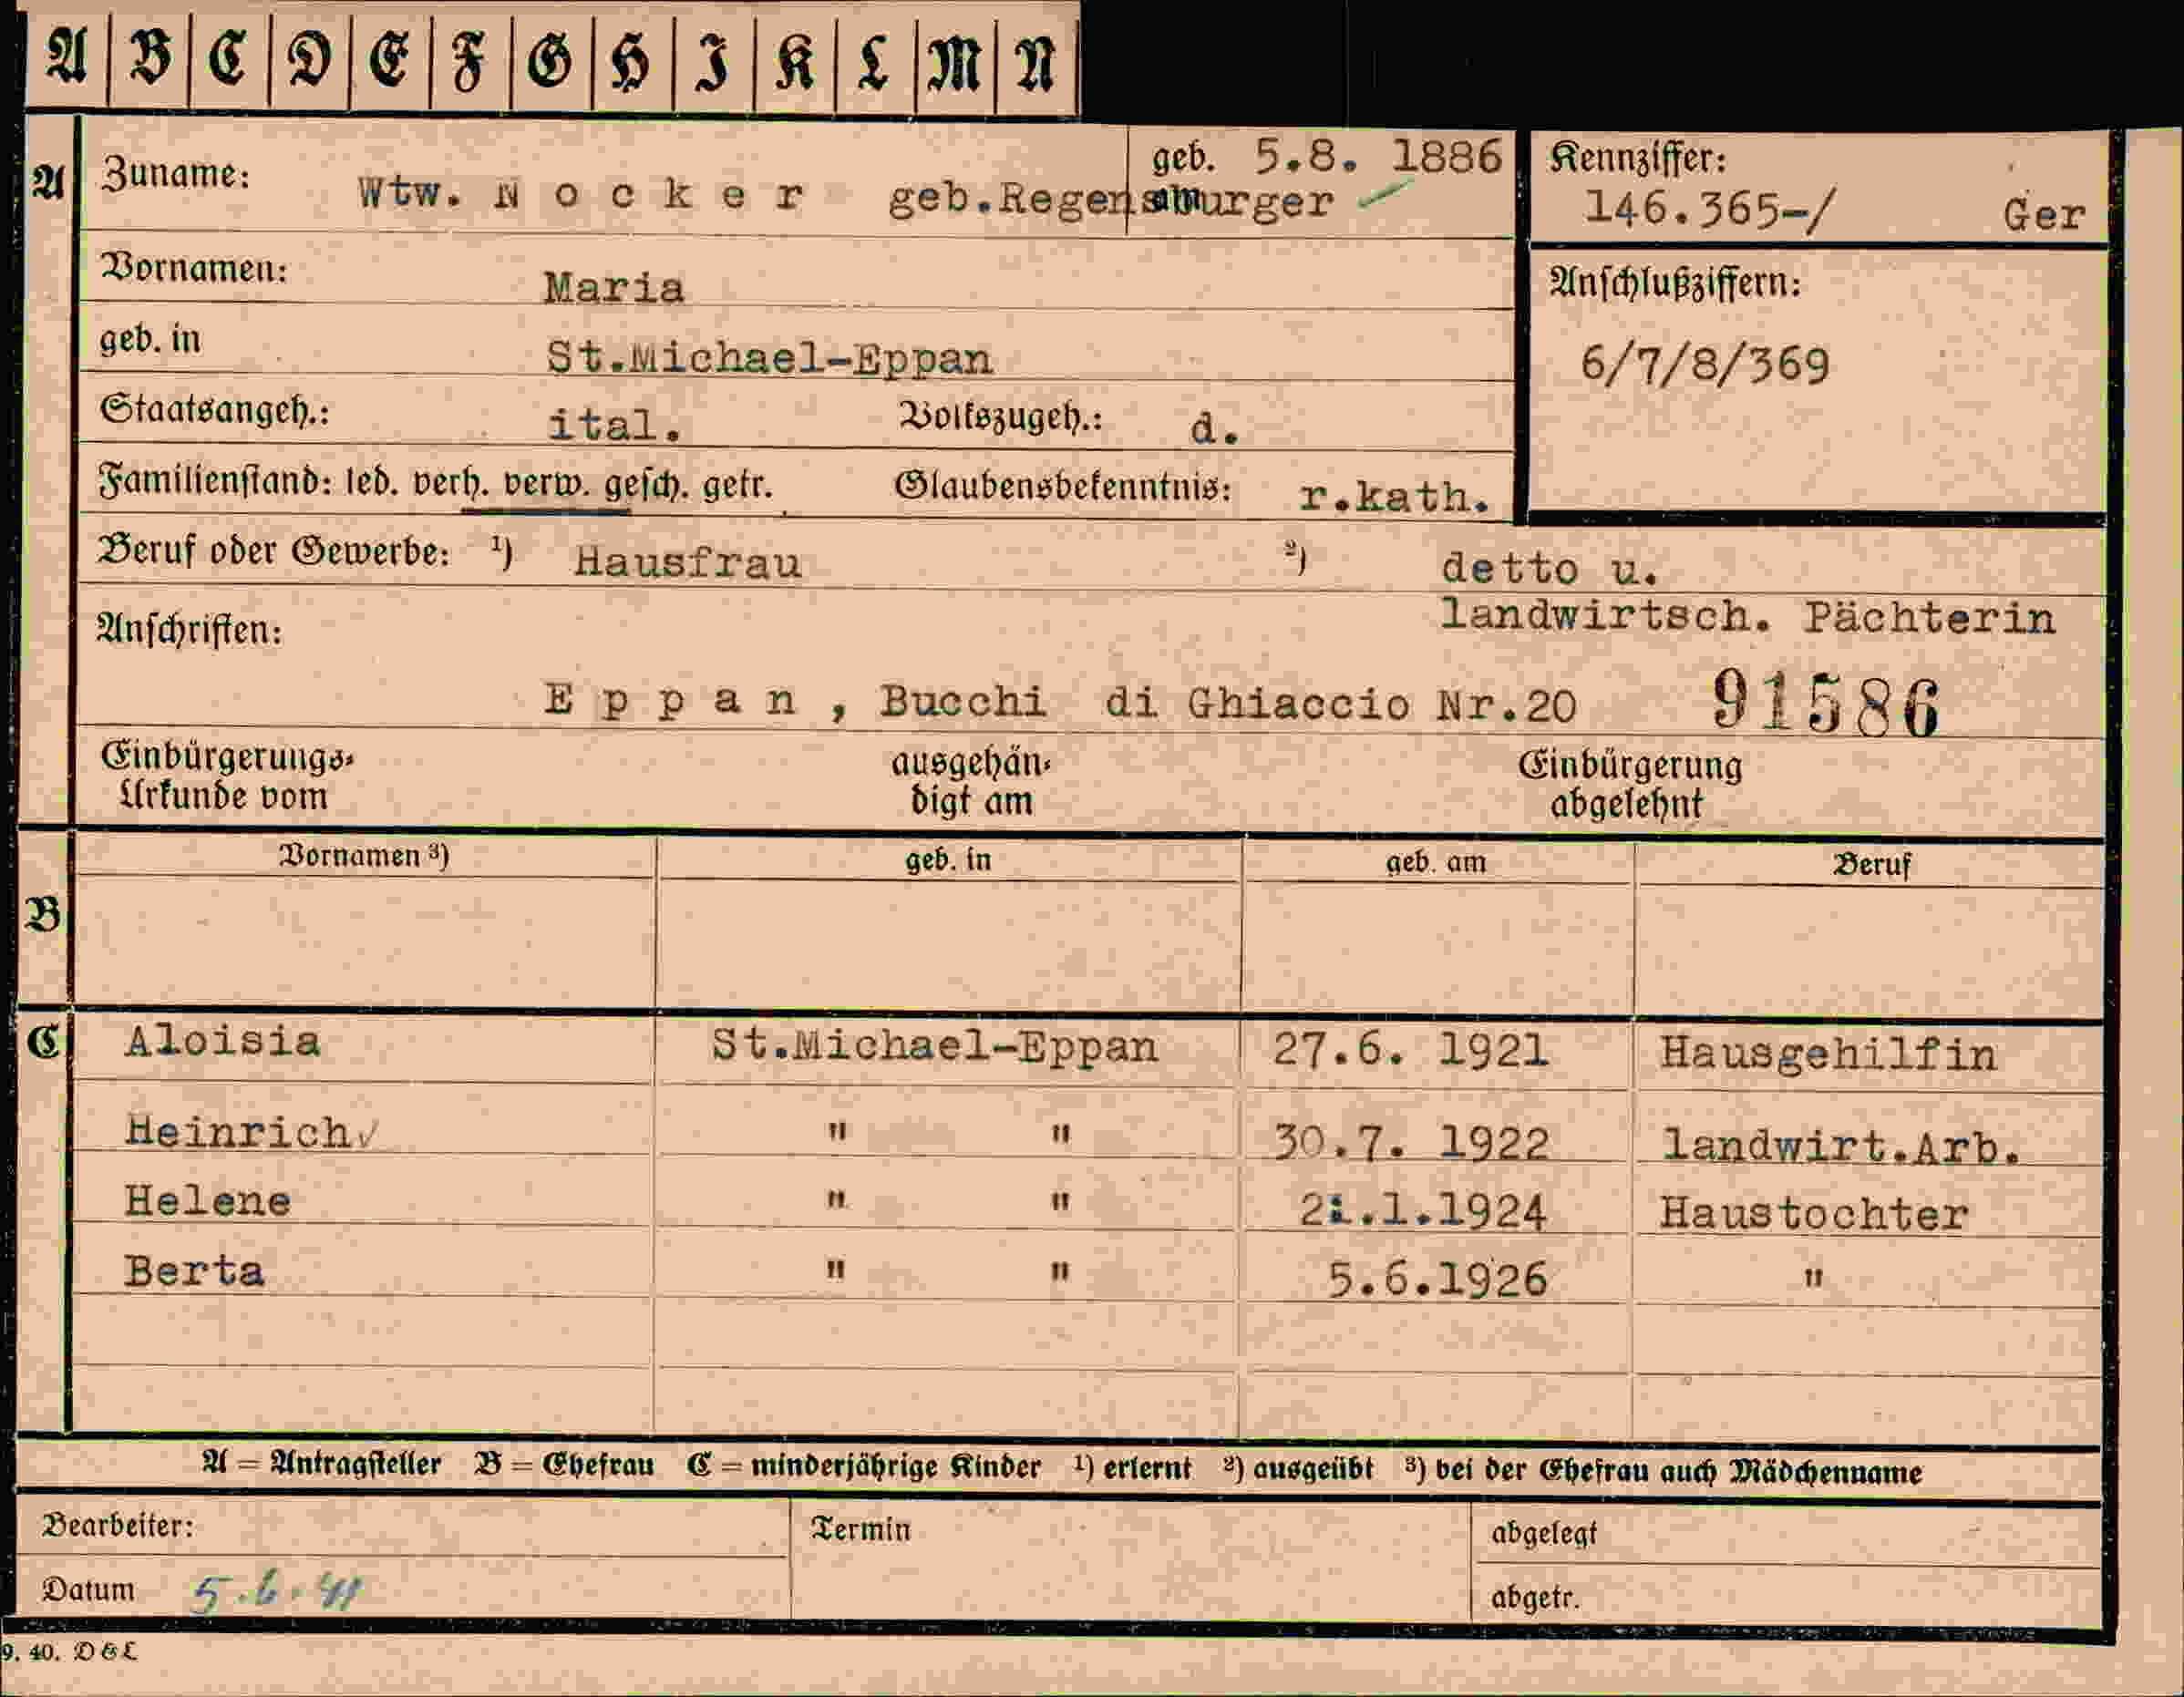 A B C D E F G H I K L M N
A Zuname: Wtw. N o c k e r geb.Regensburger geb. 5.8. 1886
Kennziffer:
146.365-/ Ger
Vornamen: Maria
geb. in St.Michael-Eppan
Anschlußziffern:
6/7/8/369
Staatsangeh.: ital. Volkszugeh.: d.
Familienstand: led. verh. verw. gesch. getr. Glaubensbekenntnis: r.kath.
Beruf oder Gewerbe: ¹) Hausfrau ²) detto u.
landwirtsch. Pächterin
Anschriften:
E p p a n , Bucchi di Ghiaccio Nr.20 91586
Einbürgerungs-
Urkunde vom
ausgehän-
digt am
Einbürgerung
abgelehnt
Vornamen ³) geb. in geb. am Beruf
B
C Aloisia St.Michael-Eppan 27.6. 1921 Hausgehilfin
Heinrich " " 30.7. 1922 landwirt.Arb.
Helene " " 21.1.1924 Haustochter
Berta " " 5.6.1926 "
A = Antragsteller B = Ehefrau C = minderjährige Kinder ¹) erlernt ²) ausgeübt ³) bei der Ehefrau auch Mädchenname
Bearbeiter: Termin abgelegt
Datum 5.6.41 abgetr.
9. 40. D&L